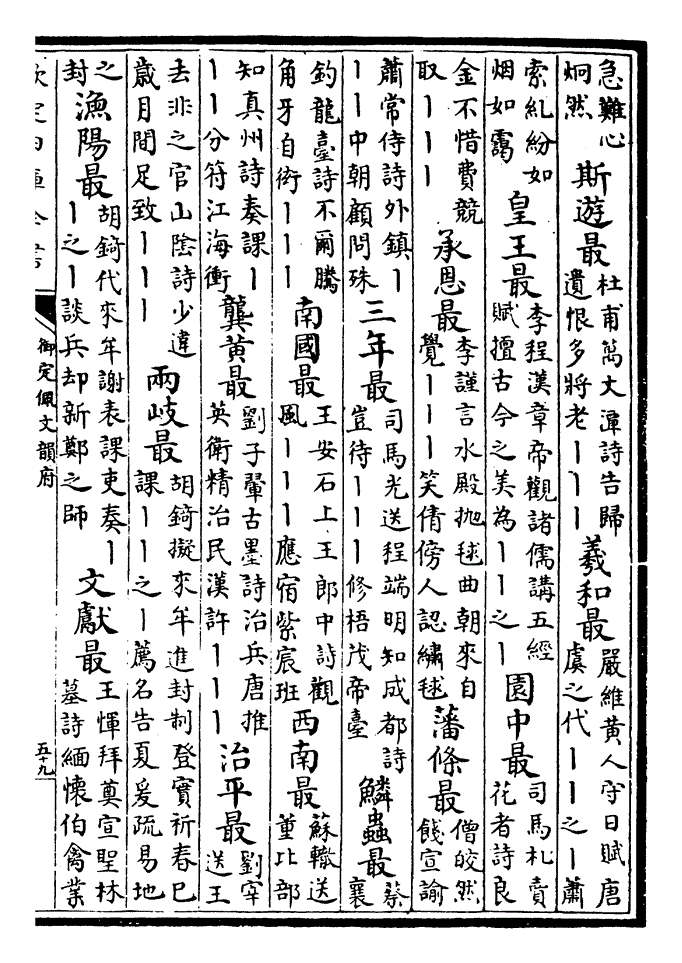 急難心
炯然
斯遊最
杜甫萬丈潭詩告歸
遺恨多將老丨丨丨
羲和最
嚴維黄人守日賦唐
虞之代丨丨之丨蕭
索紜紛如
烟如靄
皇王最
李程漢章帝觀諸儒講五經
賦擅古今之美為丨丨之丨
園中最
司馬札賣
花者詩良
金不惜費競
取丨丨丨
承恩最
李謹言水殿抛毬曲朝來自
覺丨丨丨笑倩傍人認繡毬
藩條最
僧皎然
餞宣諭
蕭常侍詩外鎮丨
丨丨中朝顧問殊
三年最
司馬光送程端明知成都詩
豈待丨丨丨修梧茂帝臺
鱗蟲最
蔡
襄
釣龍臺詩不爾騰
角牙自術丨丨丨
南國最
王安石上王郎中詩觀
風丨丨丨應宿紫宸班
西南最
蘇轍送
董比部
知真州詩奏課丨
丨丨分符江海衝
龔黄最
劉子翬古墨詩治兵唐推
英衛精治民漢許丨丨丨
治平最
劉宰
送王
去非之官山陰詩少違
歲月間足致丨丨丨
兩岐最
胡錡擬來年進封制登實祈春巳
課丨丨之丨薦名告夏爰疏易地
之
封
漁陽最
胡錡代來年謝表課吏奏丨
丨之丨談兵却新鄭之師
文獻最
王惲拜奠宣聖林
墓詩緬懷伯禽業
欽定四庫全書
御定佩文韻府
五十九